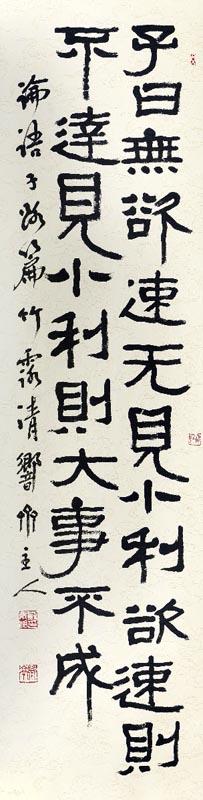 子曰無欲速无見小利欲速則
不達見小利則大事不成
論語子路篇竹露清響主人